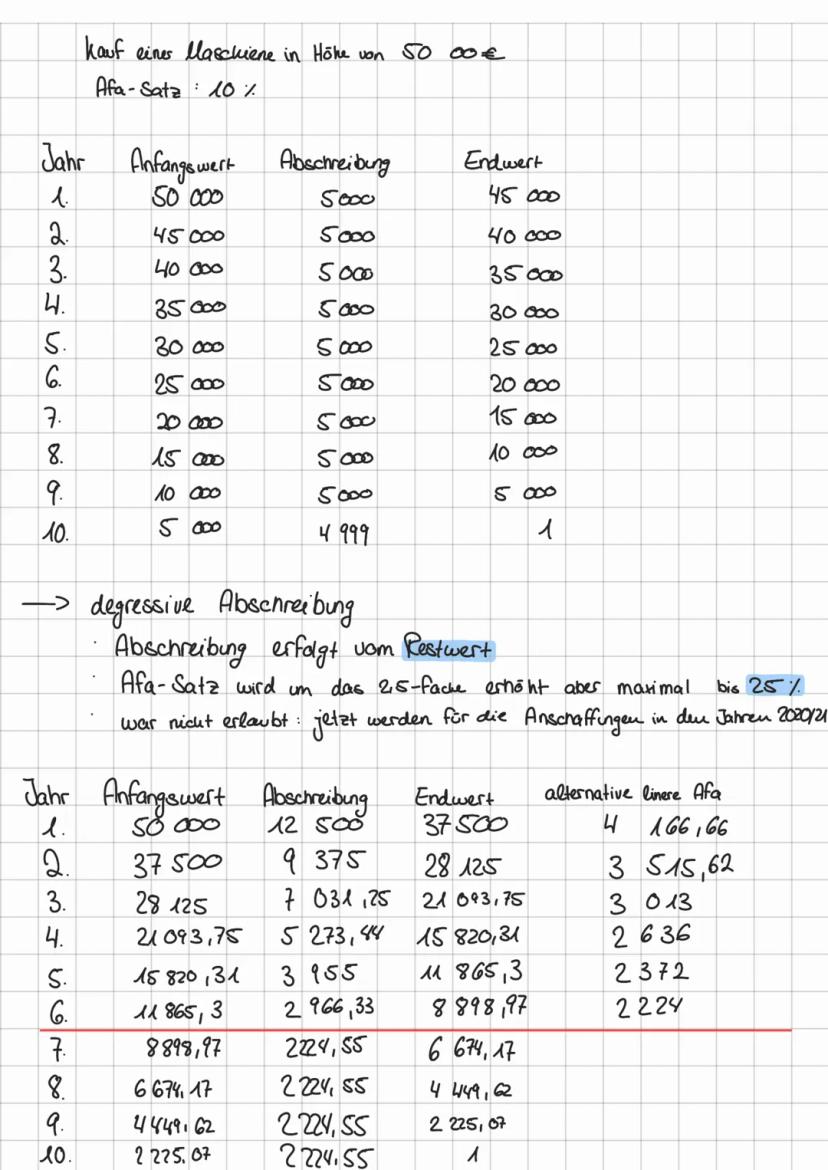 Kauf einer Maschiene in Höhe von 50 00€
Afa-Satz : 10 %
Jahr Anfangswert Abschreibung Endwert
1. 50 000 5000 45 000
2. 45 000 5000 40 000
3. 40 000 5 000 35 000
4. 35 000 5 000 30 000
5. 30 000 5 000 25 000
6. 25 000 5 000 20 000
7. 20 000 5 000 15 000
8. 15 000 5 000 10 000
9. 10 000 5 000 5 000
10. 5 000 4 999 1
—> degressive Abschreibung
· Abschreibung erfolgt vom Restwert
· Afa-Satz wird um das 2,5-fache erhöht aber maximal bis 25 %
· war nicht erlaubt : jetzt werden für die Anschaffingen in den Jahren 2020/21
Jahr Anfangswert Abschreibung Endwert alternative linere Afa
1. 50 000 12 500 37 500 4 166,66
2. 37 500 9 375 28 125 3 515,62
3. 28 125 7 031,25 21 093,75 3 013
4. 21 093,75 5 273,44 15 820,31 2 636
5. 15 820,31 3 955 11 865,3 2 372
6. 11 865,3 2 966,33 8 898,97 2 224
7. 8898,97 2224,55 6 674,17
8. 6 674,17 2 224,55 4 449,62
9. 4 449,62 2 224,55 2 225,07
10. 2 225,07 2 224,55 1